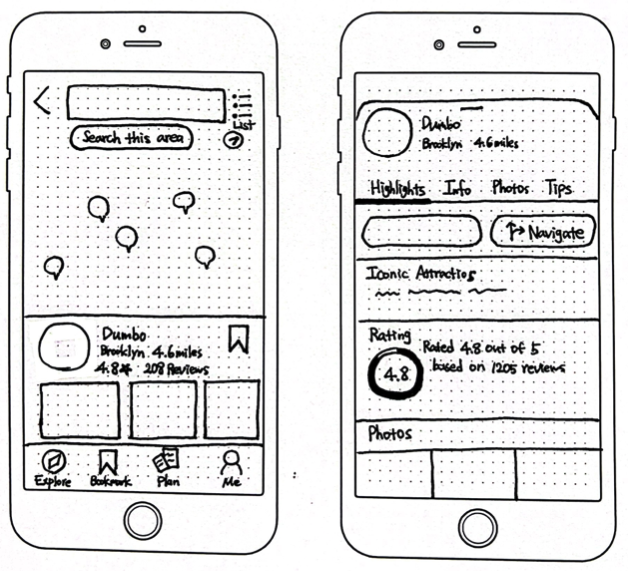 List
Search this area
Dumbo
Brooklyn 4.6miles
4.8★ 208 Reviews
Explore
Bookmark
Plan
Me
Dumbo
Brooklyn 4.6miles
Highlights Info Photos Tips
Navigate
Iconic Attractios
Rating
Rated 4.8 out of 5
based on 1205 reviews
4.8
Photos